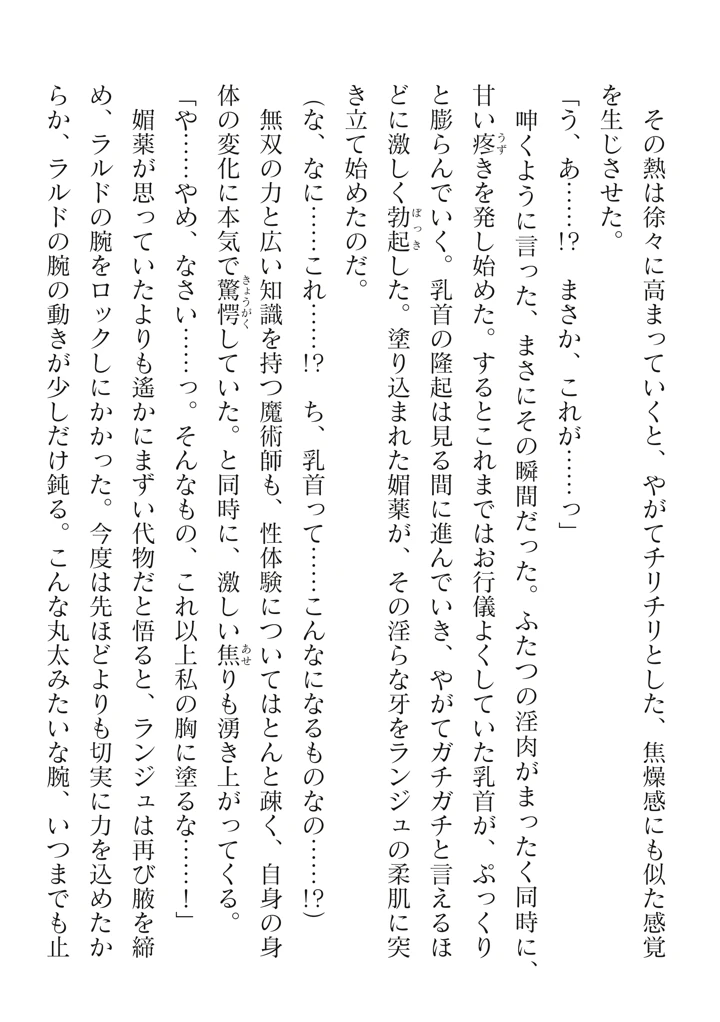 その熱は徐々に高まっていくと、やがてチリチリとした、焦燥感にも似た感覚
を生じさせた。
「う、あ……!?　まさか、これが……っ」
呻くように言った、まさにその瞬間だった。ふたつの淫肉がまったく同時に、
甘い疼きを発し始めた。するとこれまではお行儀よくしていた乳首が、ぷっくり
と膨らんでいく。乳首の隆起は見る間に進んでいき、やがてガチガチと言えるほ
どに激しく勃起した。塗り込まれた媚薬が、その淫らな牙をランジュの柔肌に突
き立て始めたのだ。
（な、なに……これ……!?　ち、乳首って……こんなになるものなの……!?）
無双の力と広い知識を持つ魔術師も、性体験についてはとんと疎く、自身の身
体の変化に本気で驚愕していた。と同時に、激しい焦りも湧き上がってくる。
「や……やめ、なさい……っ。そんなもの、これ以上私の胸に塗るな……！」
媚薬が思っていたよりも遙かにまずい代物だと悟ると、ランジュは再び腋を締
め、ラルドの腕をロックしにかかった。今度は先ほどよりも切実に力を込めたか
らか、ラルドの腕の動きが少しだけ鈍る。こんな丸太みたいな腕、いつまでも止